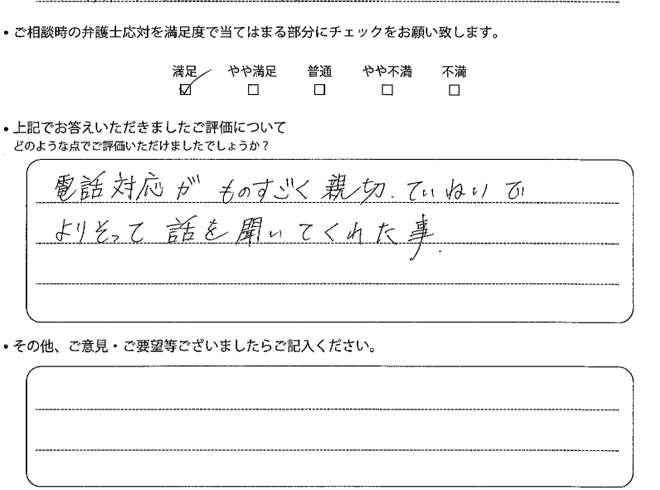 • ご相談時の弁護士応対を満足度で当てはまる部分にチェックをお願い致します。
満足 やや満足 普通 やや不満 不満
☑ □ □ □ □
• 上記でお答えいただきましたご評価について
どのような点でご評価いただけましたでしょうか？
電話対応が ものすごく親切、ていねいで
よりそって 話を聞いてくれた事.
• その他、ご意見・ご要望等ございましたらご記入ください。